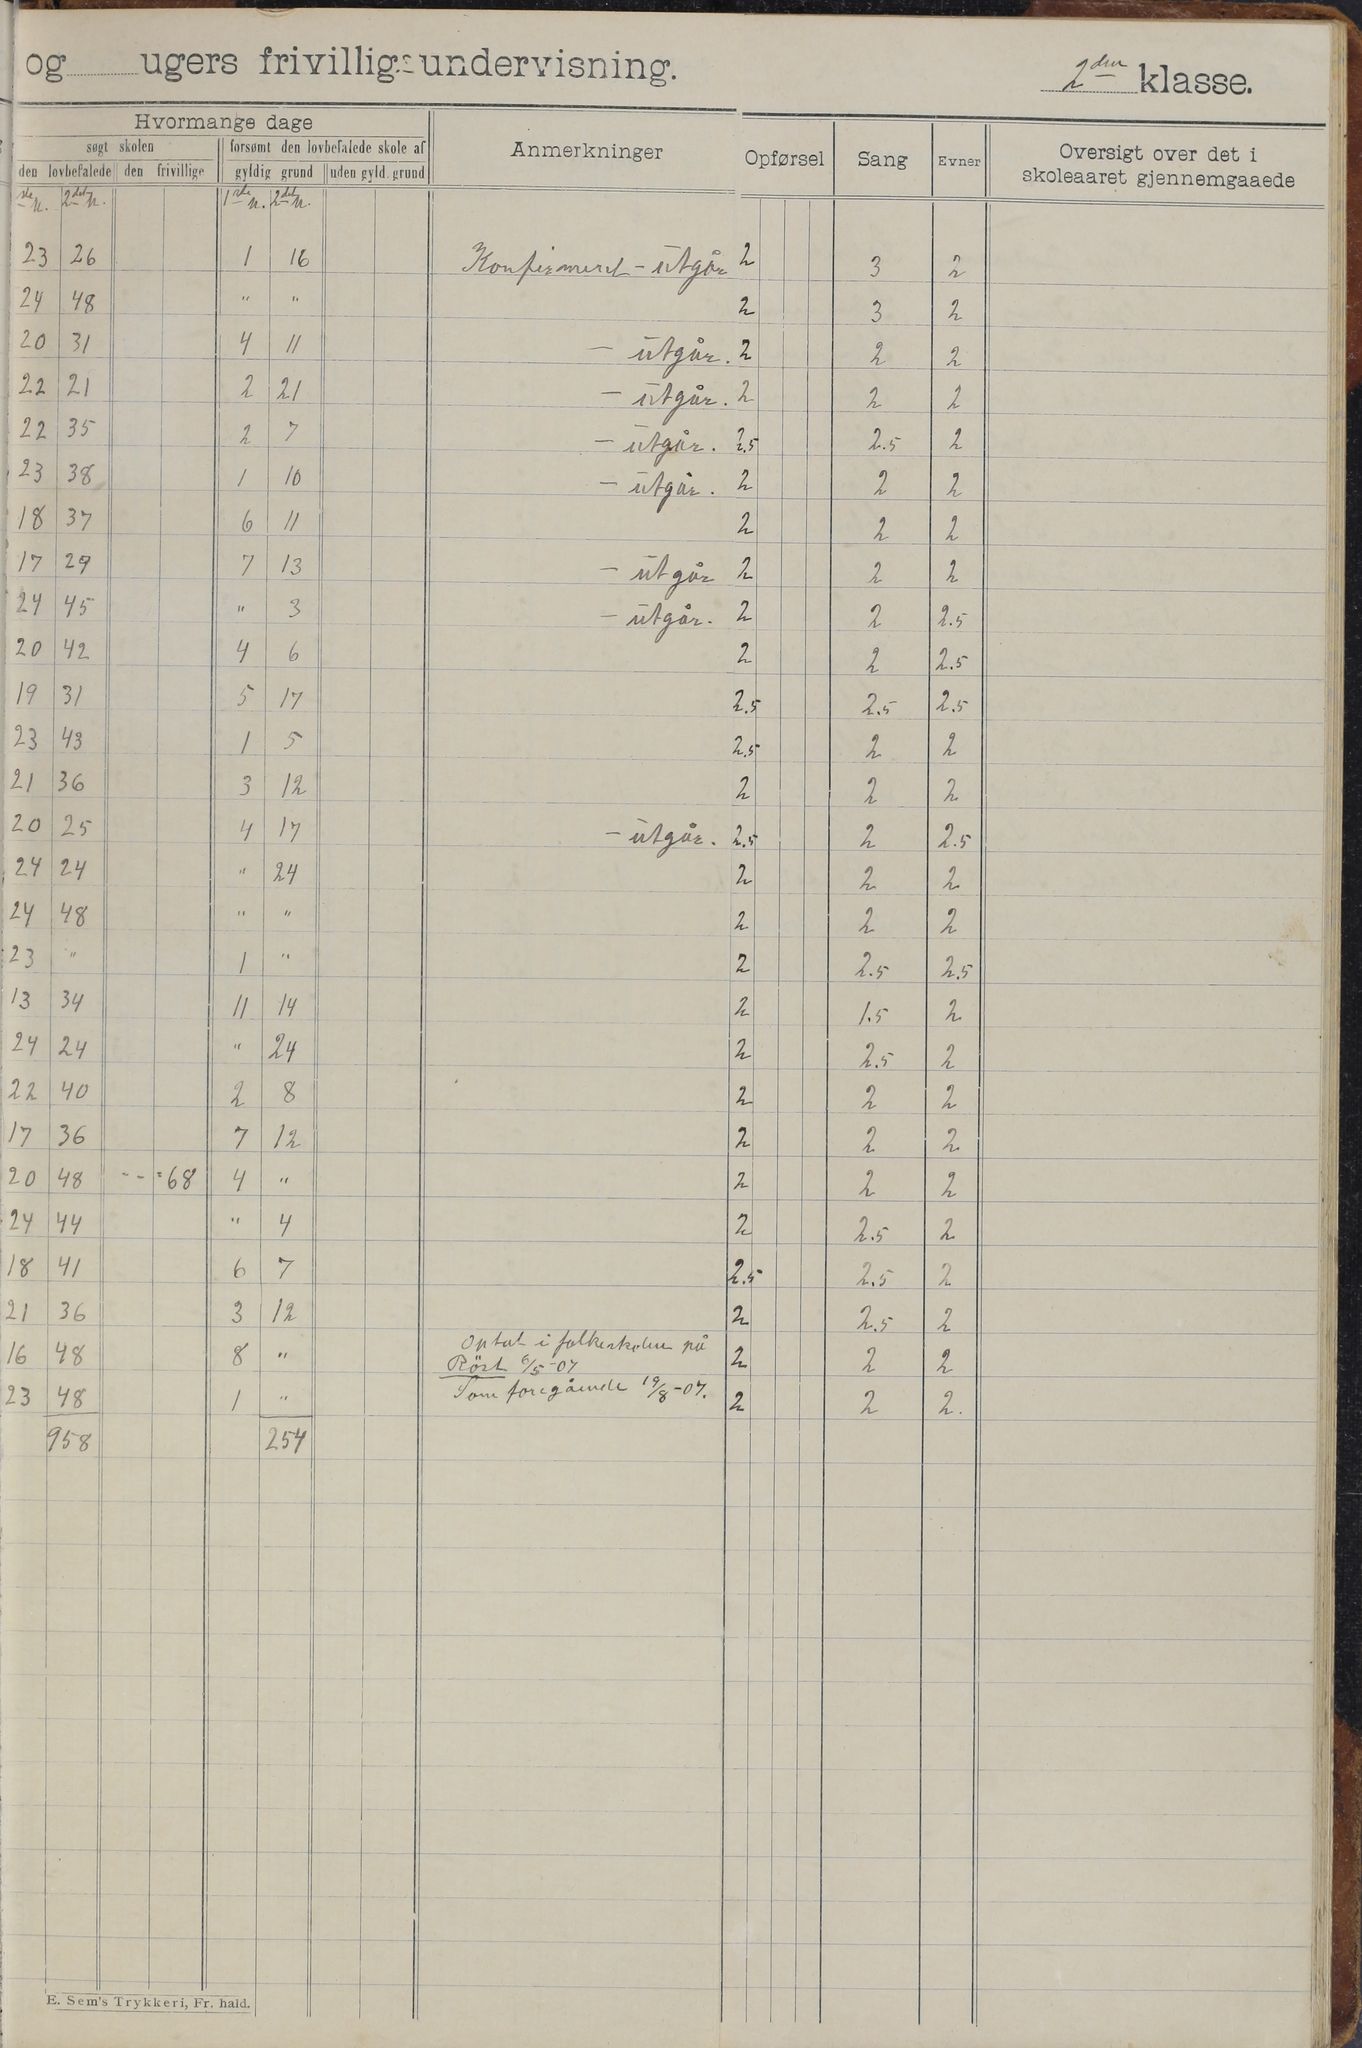 og ugers frivillige undervisning. 2den klasse.
Hvormange dage
søgt skolen forsømt den lovbefalede skole af
den lovbefalede den frivillige gyldig grund uden gyld. grund
Anmerkninger Opførsel Sang Evner Oversigt over det i skoleaaret gjennemgaaede
ste n. 2det n. 1ste n. 2det n.
23 26 1 16 Konfirmeret - utgår 2 3 2
24 48 " " 2 3 2
20 31 4 11 - utgår. 2 2 2
22 21 2 21 - utgår. 2 2 2
22 35 2 7 - utgår. 2.5 2.5 2
23 38 1 10 - utgår. 2 2 2
18 37 6 11 2 2 2
17 29 7 13 - utgår 2 2 2
24 45 " 3 - utgår. 2 2 2.5
20 42 4 6 2 2 2.5
19 31 5 17 2.5 2.5 2.5
23 43 1 5 2.5 2 2
21 36 3 12 2 2 2
20 25 4 17 - utgår. 2.5 2 2.5
24 24 " 24 2 2 2
24 48 " " 2 2 2
23 " 1 " 2 2.5 2.5
13 34 11 14 2 1.5 2
24 24 " 24 2 2.5 2
22 40 2 8 2 2 2
17 36 7 12 2 2 2
20 48 - - = 68 4 " 2 2 2
24 44 " 4 2 2.5 2
18 41 6 7 2.5 2.5 2
21 36 3 12 2 2.5 2
Optat i folkeskolen på
16 48 8 " Röst 6/5-07 2 2 2
23 48 1 " Som foregående 19/8-07. 2 2 2.
958 254
E. Sem's Trykkeri, Fr. hald.